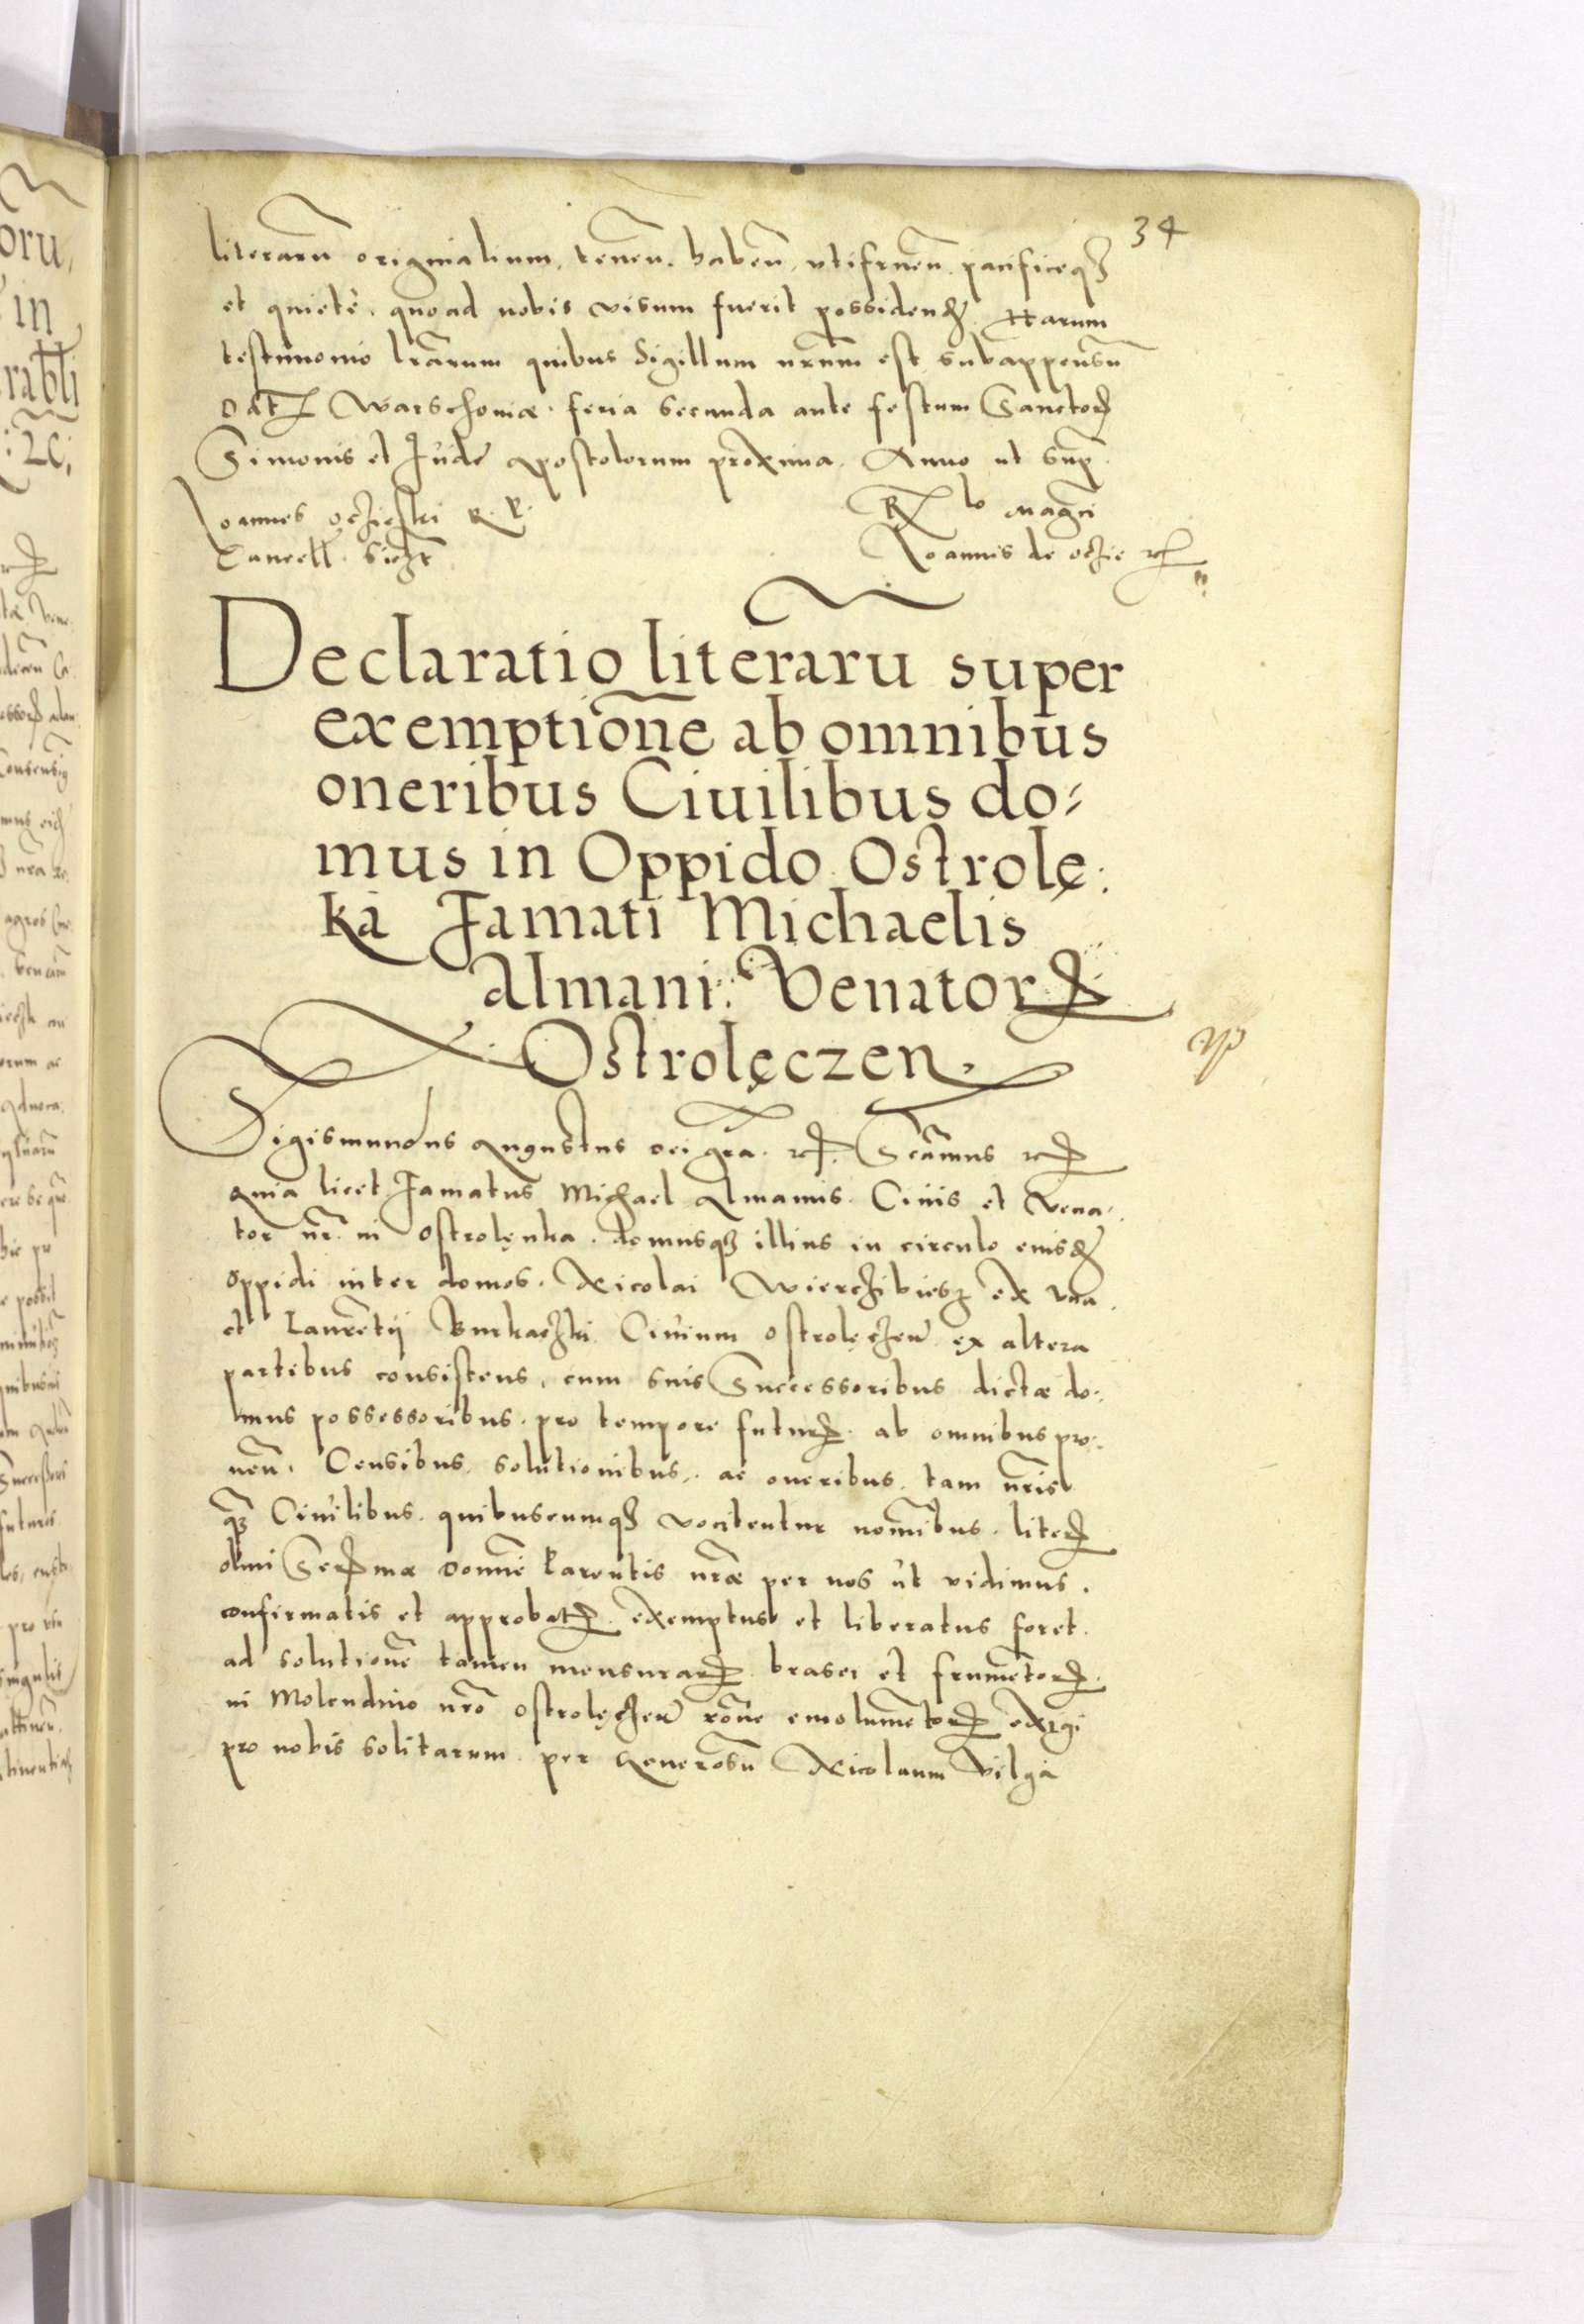 34
literarũ originalium, tenen. haben̄, utifruen̄ pacificeq₃
et quietè, quoad nobis visum fuerit possidenđ. Harum
testimonio lr̃arum quibus Sigillum nr̃um est subappensũ
Dat Warschoviæ. feria secunda ante festum Sanctoꝝ
Simonis et Iudæ Apostolorum proxima. Anno ut sup̃.
Ioannes Oczieski R. P.
Cancell. ssꝫt
Rlo Magci
Ioannis de Oczie ꝛc
Declaratio literarũ super
exemptiõne ab omnibus
oneribus Ciuilibus do⸗
mus in Oppido Ostrolę:
ka Famati Michaelis
Almani: Venatorꝝ
Ostrolęczen.
Sigismundus Augustus Dei gr̃a. ꝛc. Sẽamus ꝛc
Quia licet Famatus Michael Almanus. Ciuis et Vena⸗
tor nr̃ in Ostrolęnka. domusq₃ illius in circulo eiusđ
Oppidi inter domos. Nicolai Wierzbiesz ex una
et Laurẽtij Burkaczki Ciuium Ostrolęczen̄ ex altera
partibus consistens, cum suis Successoribus dictæ do⸗
mus possessoribus. pro tempore futurꝝ. ab omnibus pro⸗
uen̄. Censibus, solutionibus. ac oneribus. tam nr̃is
q₃ Ciuilibus. quibuscumq₃ vocitentur nomĩbus. literꝝ
olim Serꝝmæ Domnæ Parentis nr̃æ per nos ut vidimus.
confirmatis et approbatꝝ. exemptus et liberatus foret.
ad solutionẽ tamen mensurarꝝ brasei et frumẽtorꝝ.
in Molendino nr̃o Ostrolęczen̄ rõne emolumẽtorꝝ exigi
pro nobis solitarum. per Generosũ Nicolaum Wilga